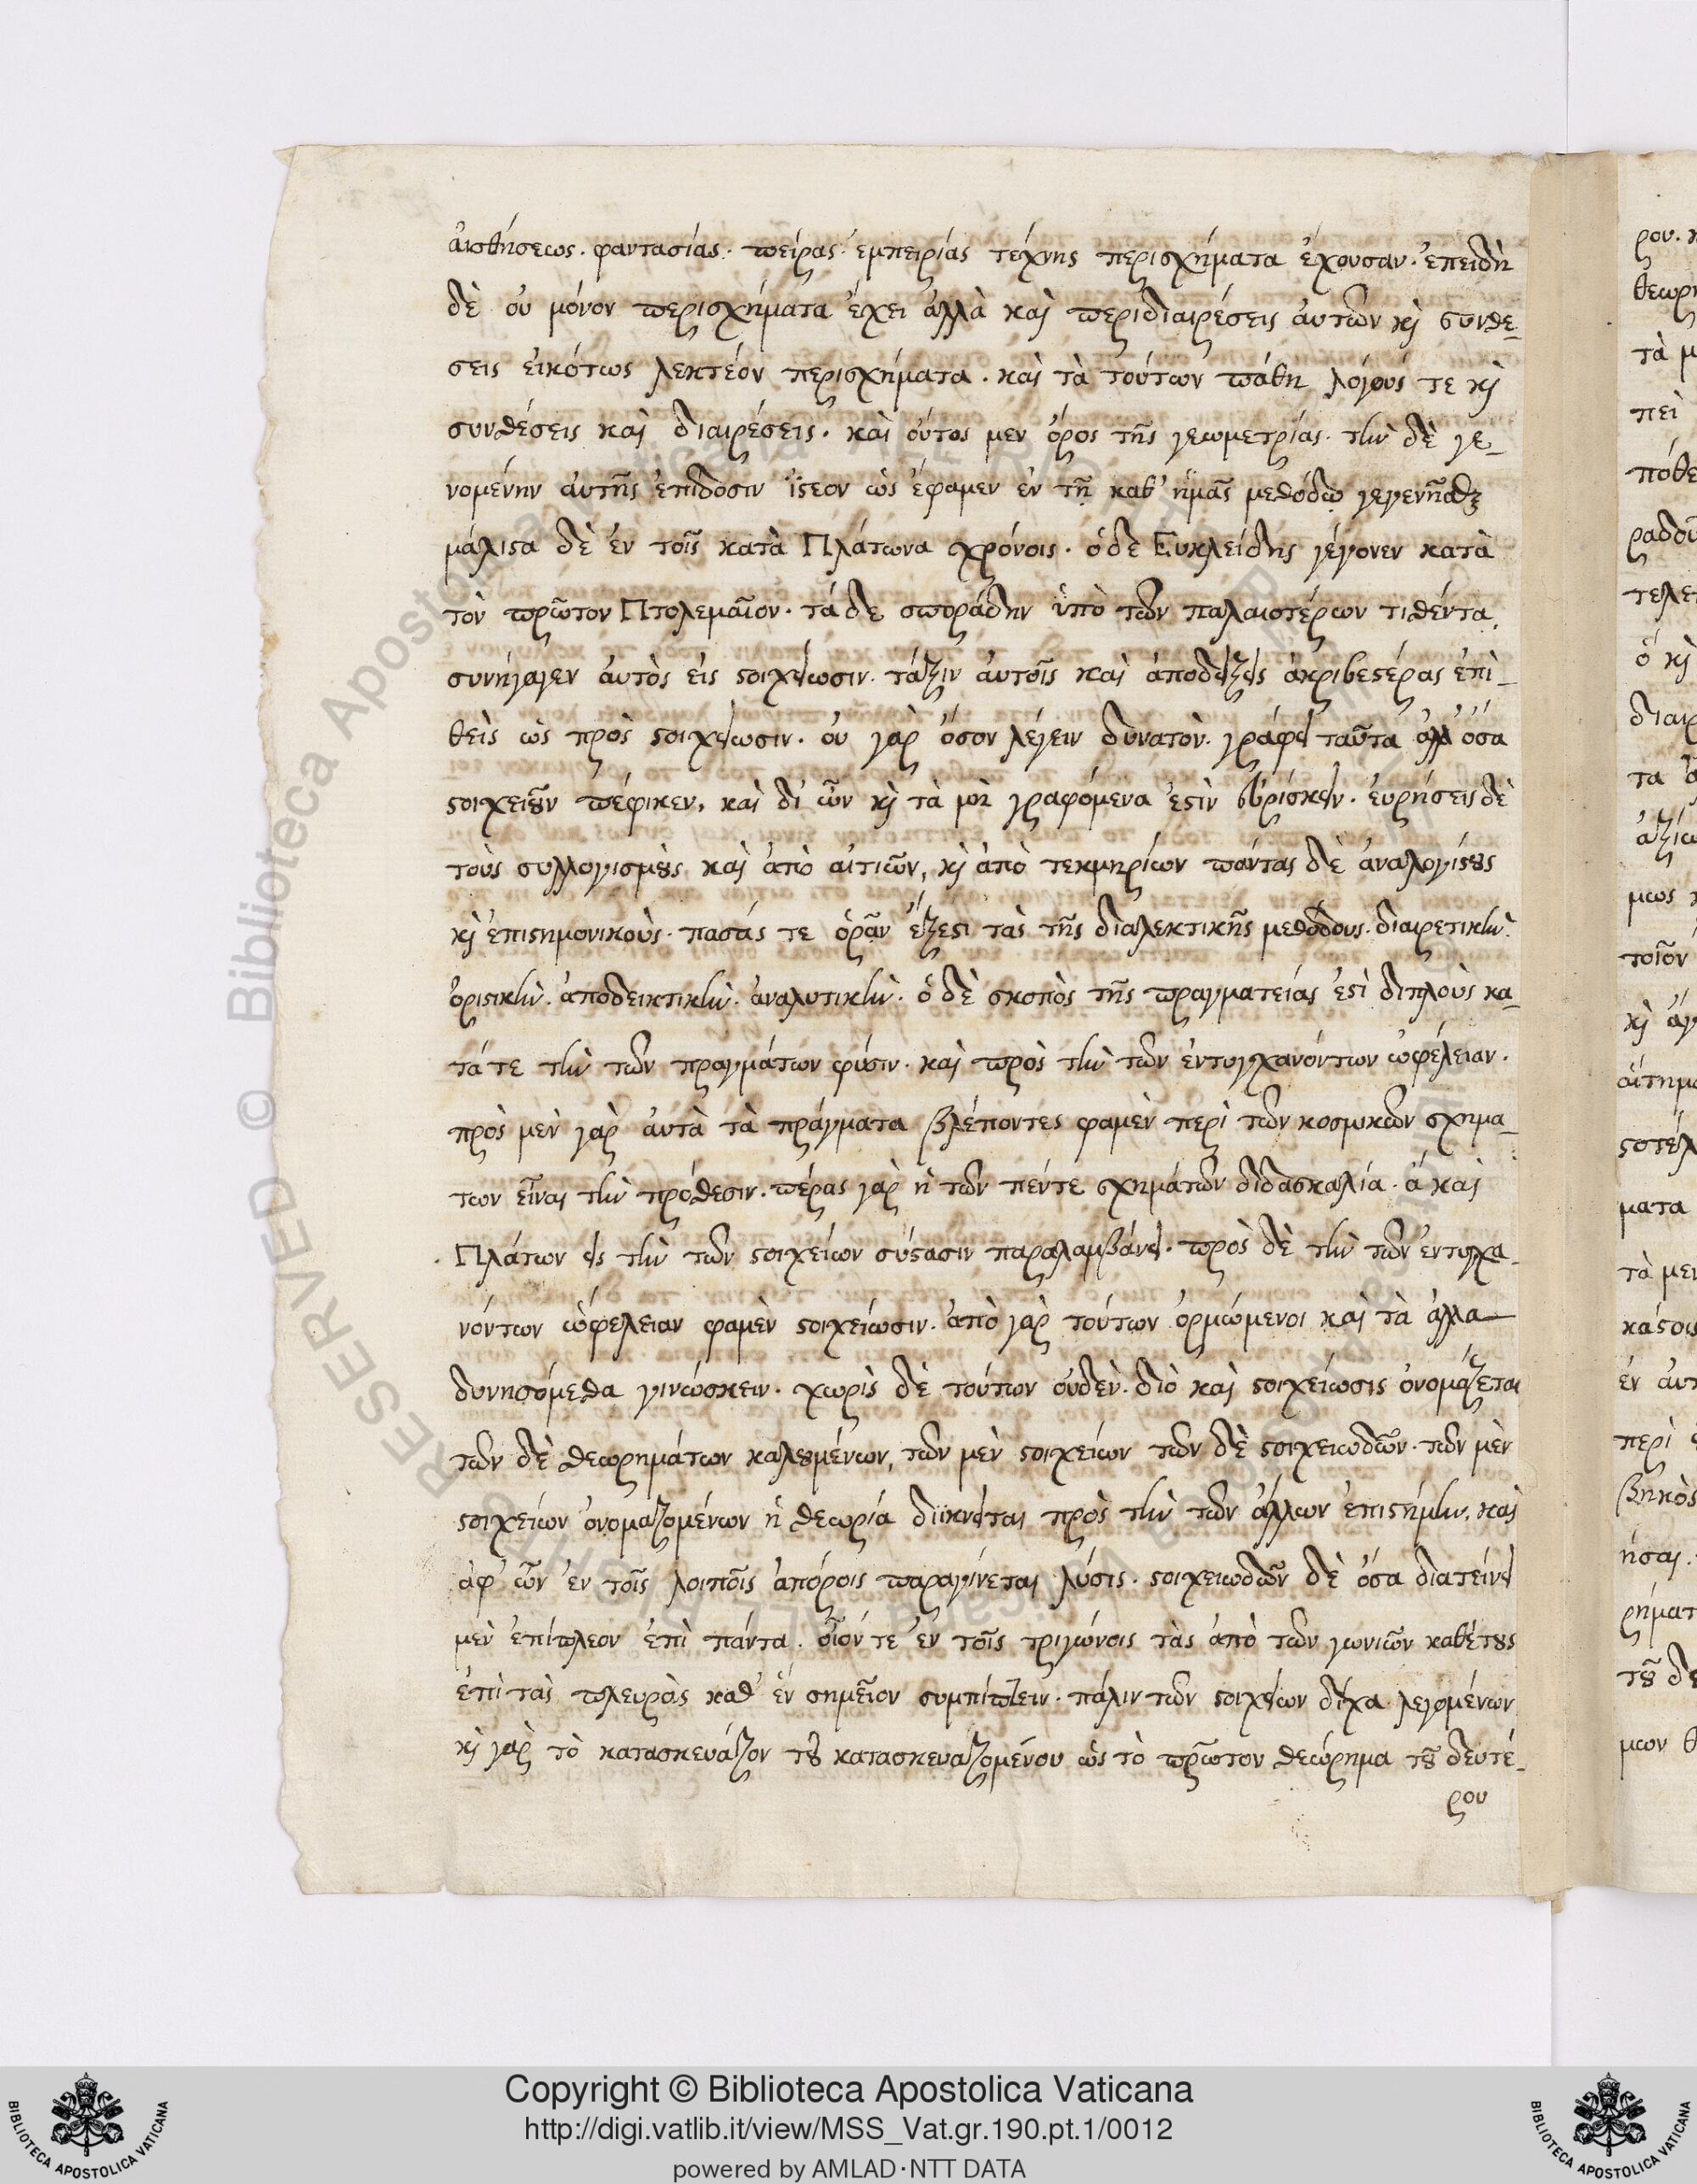 αἰσθήσεως. φαντασίας. πείρας. ἐμπειρίας τέχνης περισχήματα ἔχουσαν. ἐπειδὴ
δὲ οὐ μόνον περισχήματα ἔχει ἀλλὰ καὶ περιδιαιρέσεις ἀυτῶν κὶ συνθε-
σεις εἰκότως λεκτέον περισχήματα. καὶ τὰ τούτων πάθη λόγους τε κὶ
συνθέσεις καὶ διαιρέσεις. καὶ οὗτος μεν ὅρος τῆς γεωμετρίας. τὴν δὲ γε-
νομένην ἀυτῆς ἐπίδοσιν ἴϛεον ὡς ἔφαμεν ἐν τῇ καθ' ἡμᾶς μεθόδῳ γεγενῆσθαι
μάλιϛα δὲ ἐν τοῖς κατὰ Πλάτωνα χρόνοις. ὁ δε Ευκλείδης γέγονεν κατὰ
τὸν πρῶτον Πτολεμαῖον. τά δε σποράδην ὑπὸ τῶν παλαιοτέρων τιθέντα,
συνήγαγεν ἀυτὸς εἰς ϛοιχείωσιν. τάξιν ἀυτοῖς καὶ ἀποδείξεις ἀκριβεϛέρας ἐπι-
θεὶς ὡς πρὸς ϛοιχείωσιν. οὐ γὰρ ὅσον λέγειν δυνατὸν. γράφει ταῦτα ἀλλ' ὅσα
ϛοιχειοῦν πέφικεν, καὶ δι' ὧν κὶ τὰ μὴ γραφόμενα ἐϛὶν ἑυρίσκειν. ἑυρήσεις δὲ
τοὺς συλλογισμοὺς καὶ ἀπὸ αἰτιῶν, κὶ ἀπὸ τεκμηρίων πάντας δὲ ἀναλογίϛους
κὶ ἐπιϛημονικοὺς. πασάς τε ὁρᾶν ἔξεϛι τὰς τῆς διαλεκτικῆς μεθόδους. διαιρετικὴν.
ὁριϛικὴν. ἀποδεικτικὴν. ἀναλυτικὴν. ὁ δὲ σκοπὸς τῆς πραγματείας ἐϛὶ διπλοὺς κα-
τά τε τὴν τῶν πραγμάτων φύσιν. καὶ πρὸς τὴν τῶν ἐντυγχανόντων ὠφέλειαν.
πρὸς μὲν γὰρ ἀυτὰ τὰ πράγματα βλέποντες φαμὲν περὶ τῶν κοσμικῶν σχημα-
των εἶναι τὴν πρόθεσιν. πέρας γὰρ ἡ τῶν πέντε σχημάτων διδασκαλία. ἃ καὶ
Πλάτων εἰς τὴν τῶν ϛοιχείων σύϛασιν παραλαμβάνει. πρὸς δὲ τὴν τῶν ἐντυγχα-
νόντων ὠφέλειαν φαμὲν ϛοιχείωσιν. ἀπὸ γὰρ τούτων ὁρμώμενοι καὶ τὰ ἀλλα
δυνησόμεθα γινώσκειν. χωρὶς δὲ τούτων οὐδὲν. διὸ καὶ ϛοιχείωσις ὀνομάζεται
τῶν δὲ θεωρημάτων καλουμένων, τῶν μὲν ϛοιχείων τῶν δὲ ϛοιχειωδῶν. τῶν μὲν
ϛοιχείων ὀνομαζομένων ἡ θεωρία διϊκνεῖται πρὸς τὴν τῶν ἄλλων ἐπιϛήμην, καὶ
ἀφ' ὧν ἐν τοῖς λοιποῖς ἀπόροις παραγίνεται λύσις. ϛοιχειωδῶν δὲ ὅσα διατείνει
μὲν ἐπίπλεον ἐπὶ πάντα. οἷόν τε ἐν τοῖς τριγώνοις τὰς ἀπὸ τῶν γωνιῶν καθέτους
ἐπὶ τὰς πλευρὰς καθ' ἓν σημεῖον συμπίπτειν. πάλιν τῶν ϛοιχείων δίχα λεγομένων
κὶ γὰρ τὸ κατασκευάζον τοῦ κατασκευαζομένου ὡς τὸ πρῶτον θεώρημα τοῦ δευτέ-
ρου
Copyright © Biblioteca Apostolica Vaticana
http://digi.vatlib.it/view/MSS_Vat.gr.190.pt.1/0012
powered by AMLAD·NTT DATA